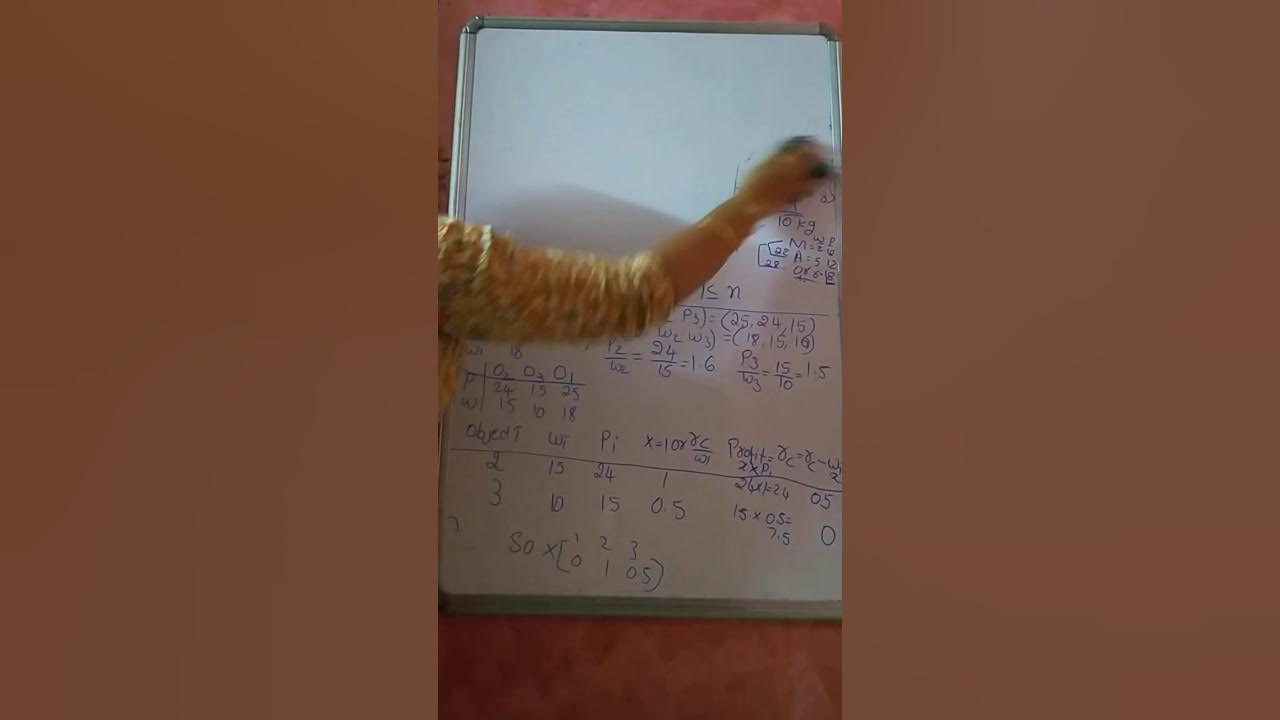 10 kg
W P
M = 2
28 A = 5 12
28 Or 6-18
1 ≤ n
P3) = (25, 24, 15)
w2 w3) = (18, 15, 10)
w1 18
P2/w2 = 24/15 = 1.6 P3/w3 = 15/10 = 1.5
O2 O3 O1
P 24 15 25
w 15 10 18
Object wi Pi x=1 or rc/wi Profit= x×Pi rc=rc-wi x
2 15 24 1 24×1=24 05
3 10 15 0.5 15×0.5= 7.5 0
So x[1 2 3
0 1 0.5)